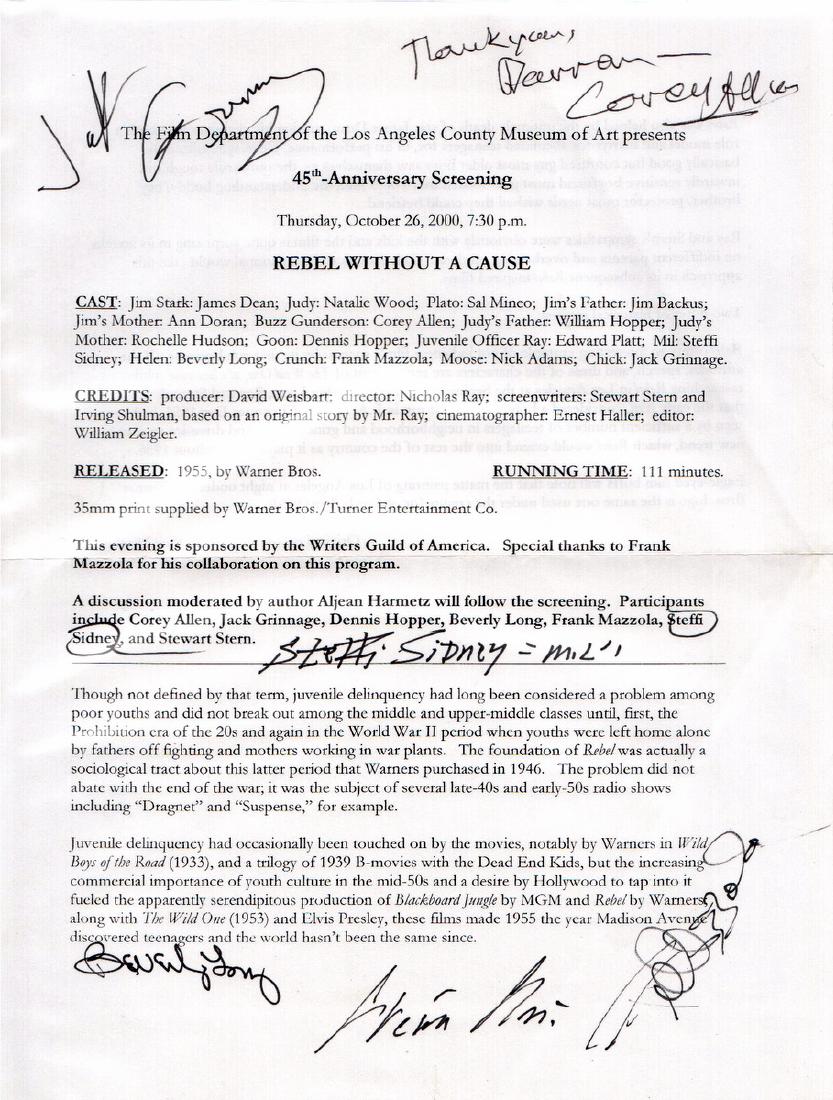 Thankyou,
Darran—
Corey Allen
Jack Grinnage
The Film Department of the Los Angeles County Museum of Art presents
45th-Anniversary Screening
Thursday, October 26, 2000, 7:30 p.m.
REBEL WITHOUT A CAUSE
CAST: Jim Stark: James Dean; Judy: Natalie Wood; Plato: Sal Mineo; Jim's Father: Jim Backus;
Jim's Mother: Ann Doran; Buzz Gunderson: Corey Allen; Judy's Father: William Hopper; Judy's
Mother: Rochelle Hudson; Goon: Dennis Hopper; Juvenile Officer Ray: Edward Platt; Mil: Steffi
Sidney; Helen: Beverly Long; Crunch: Frank Mazzola; Moose: Nick Adams; Chick: Jack Grinnage.
CREDITS: producer: David Weisbart; director: Nicholas Ray; screenwriters: Stewart Stern and
Irving Shulman, based on an original story by Mr. Ray; cinematographer: Ernest Haller; editor:
William Zeigler.
RELEASED: 1955, by Warner Bros. RUNNING TIME: 111 minutes.
35mm print supplied by Warner Bros./Turner Entertainment Co.
This evening is sponsored by the Writers Guild of America. Special thanks to Frank
Mazzola for his collaboration on this program.
A discussion moderated by author Aljean Harmetz will follow the screening. Participants
include Corey Allen, Jack Grinnage, Dennis Hopper, Beverly Long, Frank Mazzola, Steffi
Sidney, and Stewart Stern.
Steffi Sidney = "Mil"
Though not defined by that term, juvenile delinquency had long been considered a problem among
poor youths and did not break out among the middle and upper-middle classes until, first, the
Prohibition era of the 20s and again in the World War II period when youths were left home alone
by fathers off fighting and mothers working in war plants. The foundation of Rebel was actually a
sociological tract about this latter period that Warners purchased in 1946. The problem did not
abate with the end of the war; it was the subject of several late-40s and early-50s radio shows
including "Dragnet" and "Suspense," for example.
Juvenile delinquency had occasionally been touched on by the movies, notably by Warners in Wild
Boys of the Road (1933), and a trilogy of 1939 B-movies with the Dead End Kids, but the increasing
commercial importance of youth culture in the mid-50s and a desire by Hollywood to tap into it
fueled the apparently serendipitous production of Blackboard Jungle by MGM and Rebel by Warners;
along with The Wild One (1953) and Elvis Presley, these films made 1955 the year Madison Avenue
discovered teenagers and the world hasn't been the same since.
Beverly Long